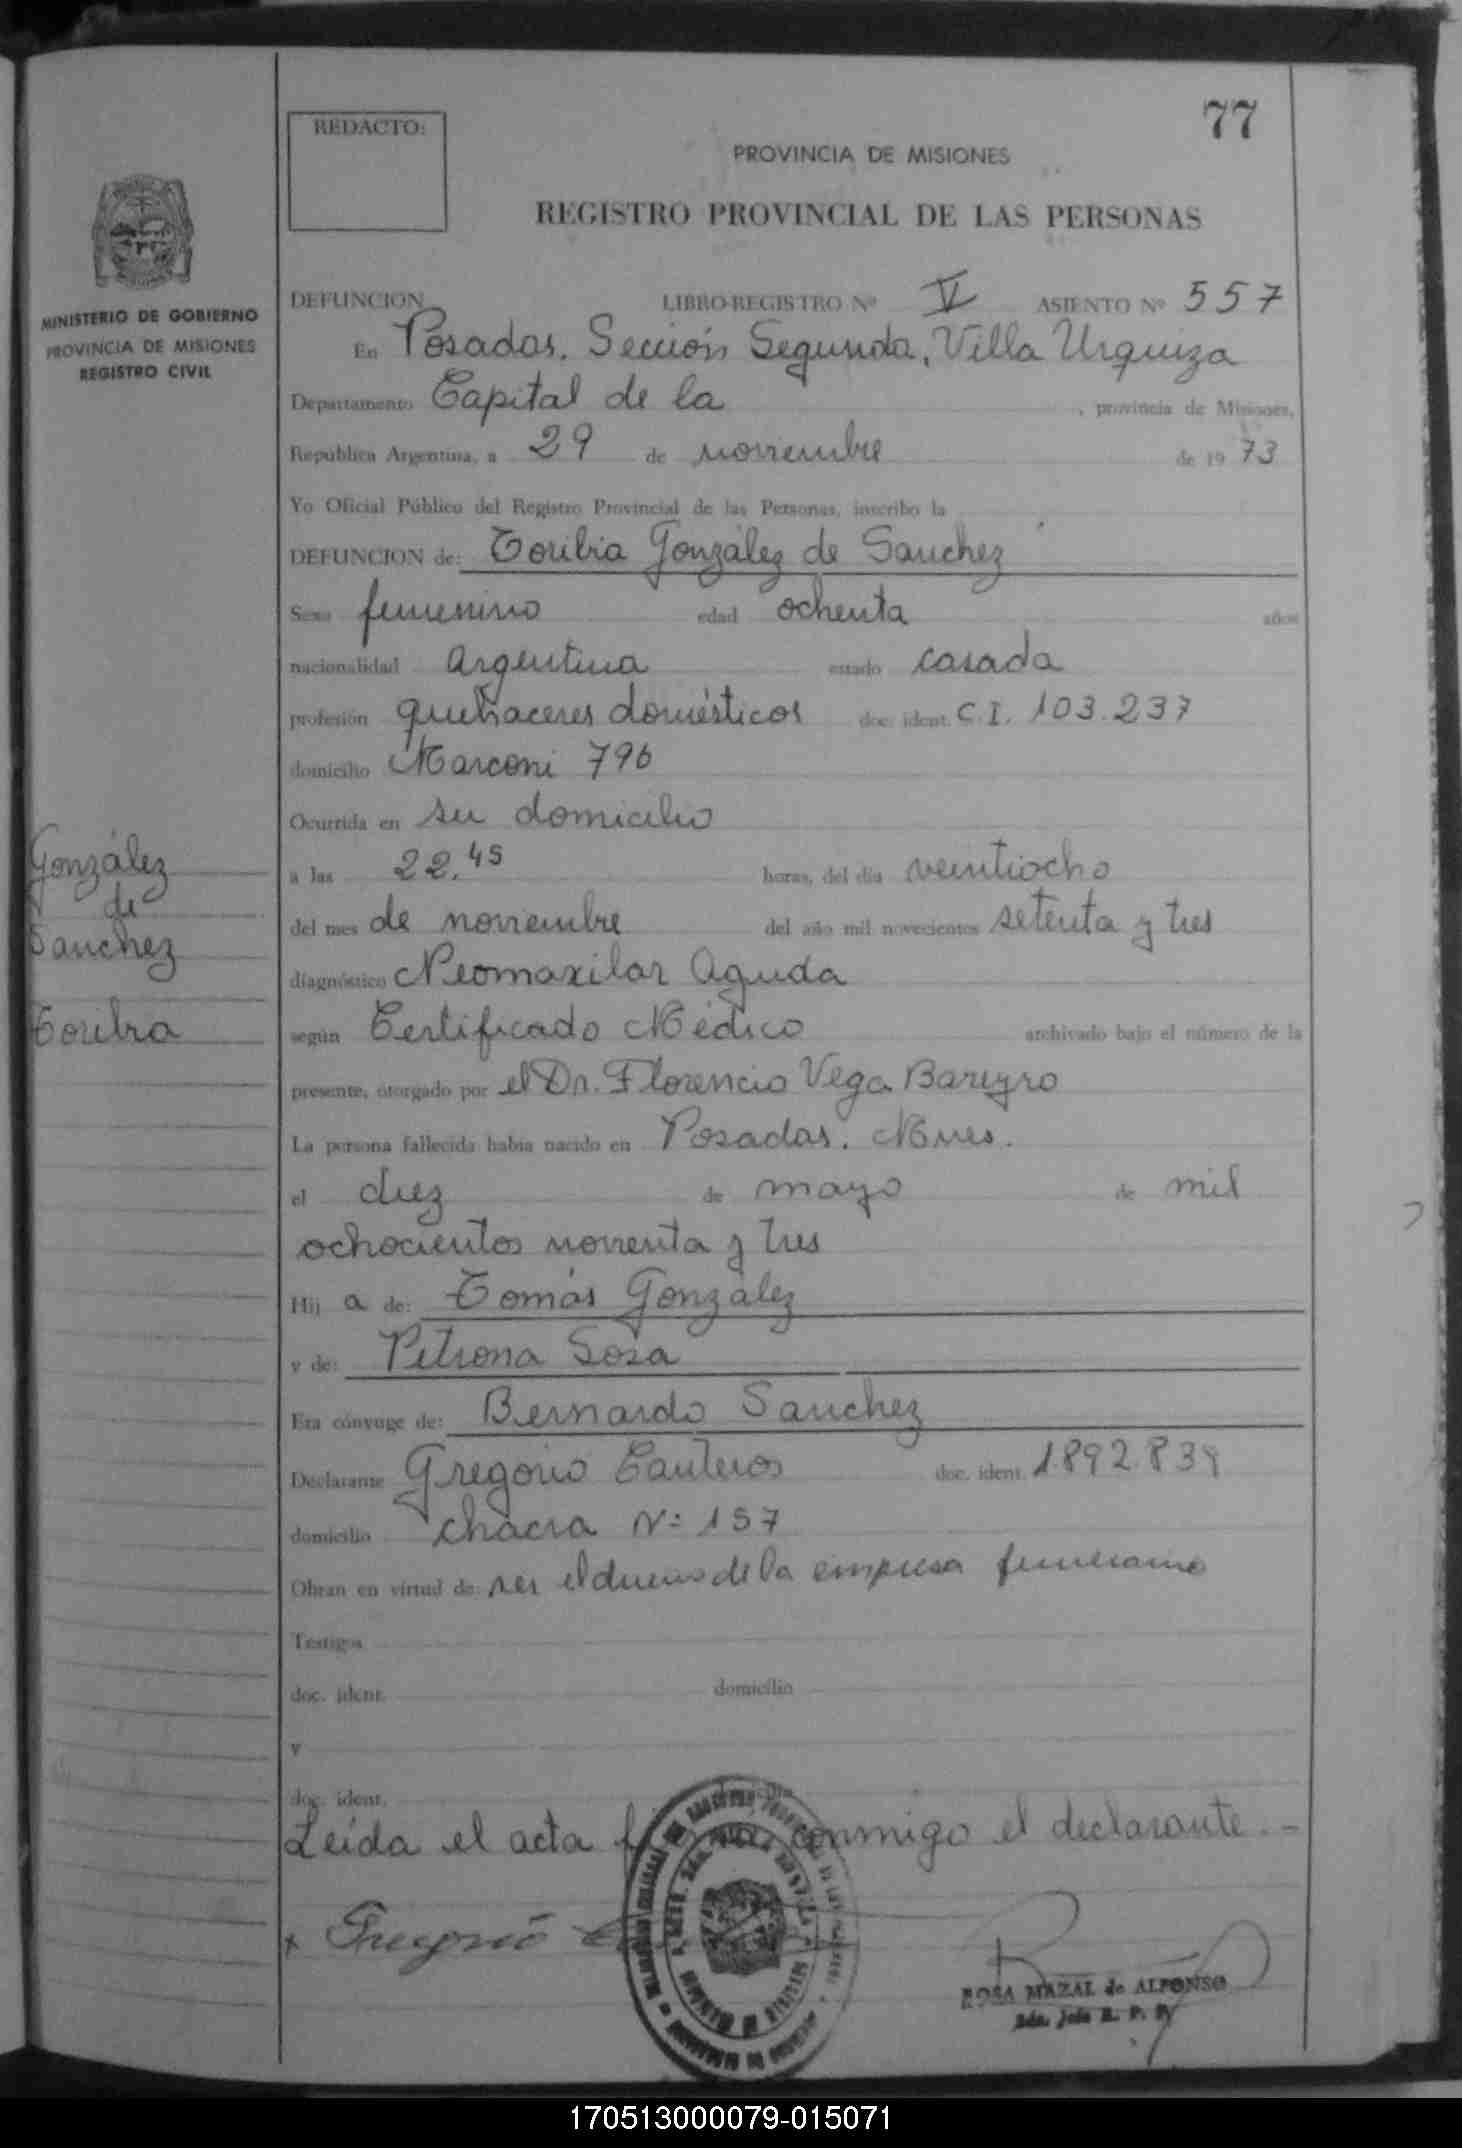 77
REDACTO:
PROVINCIA DE MISIONES
REGISTRO PROVINCIAL DE LAS PERSONAS
MINISTERIO DE GOBIERNO
PROVINCIA DE MISIONES
REGISTRO CIVIL
DEFUNCION LIBRO-REGISTRO Nº V ASIENTO Nº 557
En Posadas. Sección Segunda, Villa Urquiza
Departamento Capital de la , provincia de Misiones,
República Argentina, a 29 de noviembre de 1973
Yo Oficial Público del Registro Provincial de las Personas, inscribo la
DEFUNCION de: Toribia González de Sanchez
Sexo femenino edad ochenta años
nacionalidad argentina estado casada
profesión quehaceres domésticos doc. ident. C.I. 103.237
domicilio Marconi 796
Ocurrida en su domicilio
a las 22.45 horas, del día veintiocho
del mes de noviembre del año mil novecientos setenta y tres
diagnóstico Neomaxilar Aguda
según Certificado Médico archivado bajo el número de la
presente, otorgado por el Dr. Florencio Vega Bareyro
La persona fallecida había nacido en Posadas. Mnes.
el diez de mayo de mil
ochocientos noventa y tres
Hij a de: Tomás González
y de: Petrona Sosa
Era cónyuge de: Bernardo Sanchez
Declarante Gregorio Canteros doc. ident. 1.892.839
domicilio chacra Nº 157
Obran en virtud de ser el dueño de la empresa funeraria
Testigos
doc. ident. domicilio
y
doc. ident.
Leída el acta conmigo el declarante.-
x Gregorio
ROSA MAZAL de ALFONSO
González
de
Sanchez
Toribia
170513000079-015071